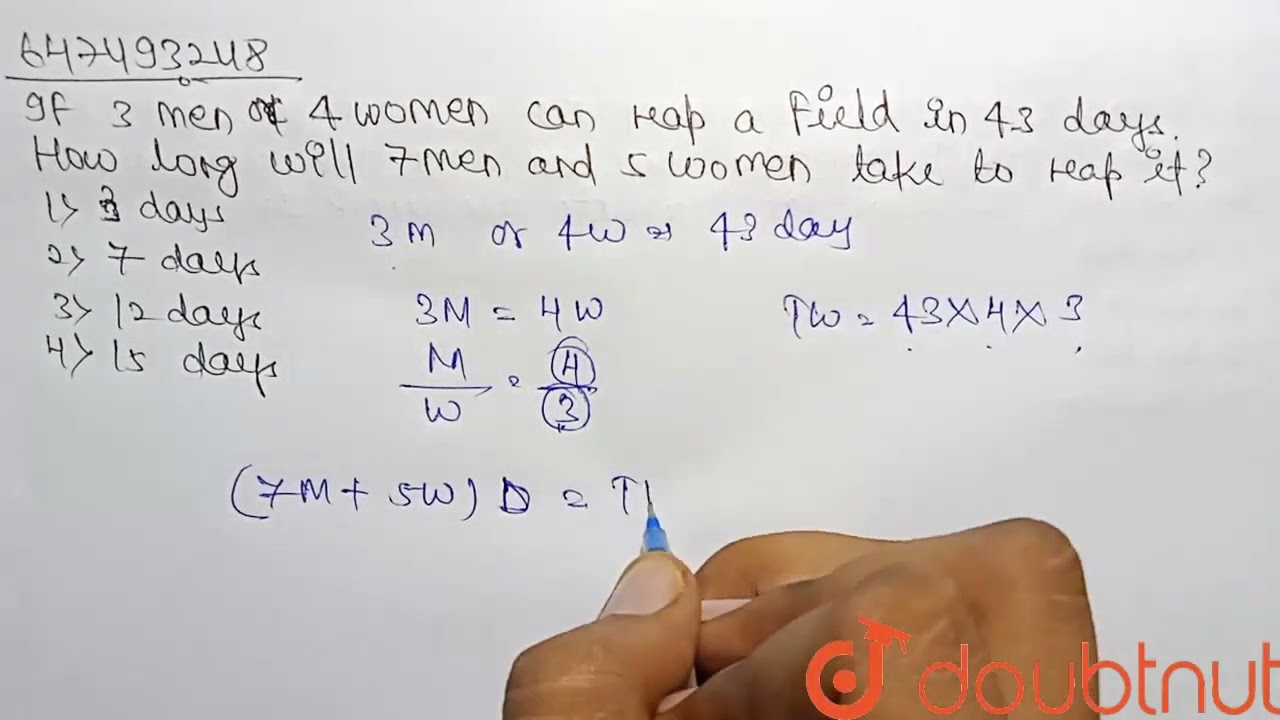 647493248
If 3 men or 4 women can reap a field in 43 days.
How long will 7men and 5 women take to reap it?
1> 3 days
2> 7 days
3> 12 days
4> 15 days
3M or 4W = 43 day
3M = 4W
M/W = 4/3
TW = 43×4×3
(7M + 5W) D = T
doubtnut